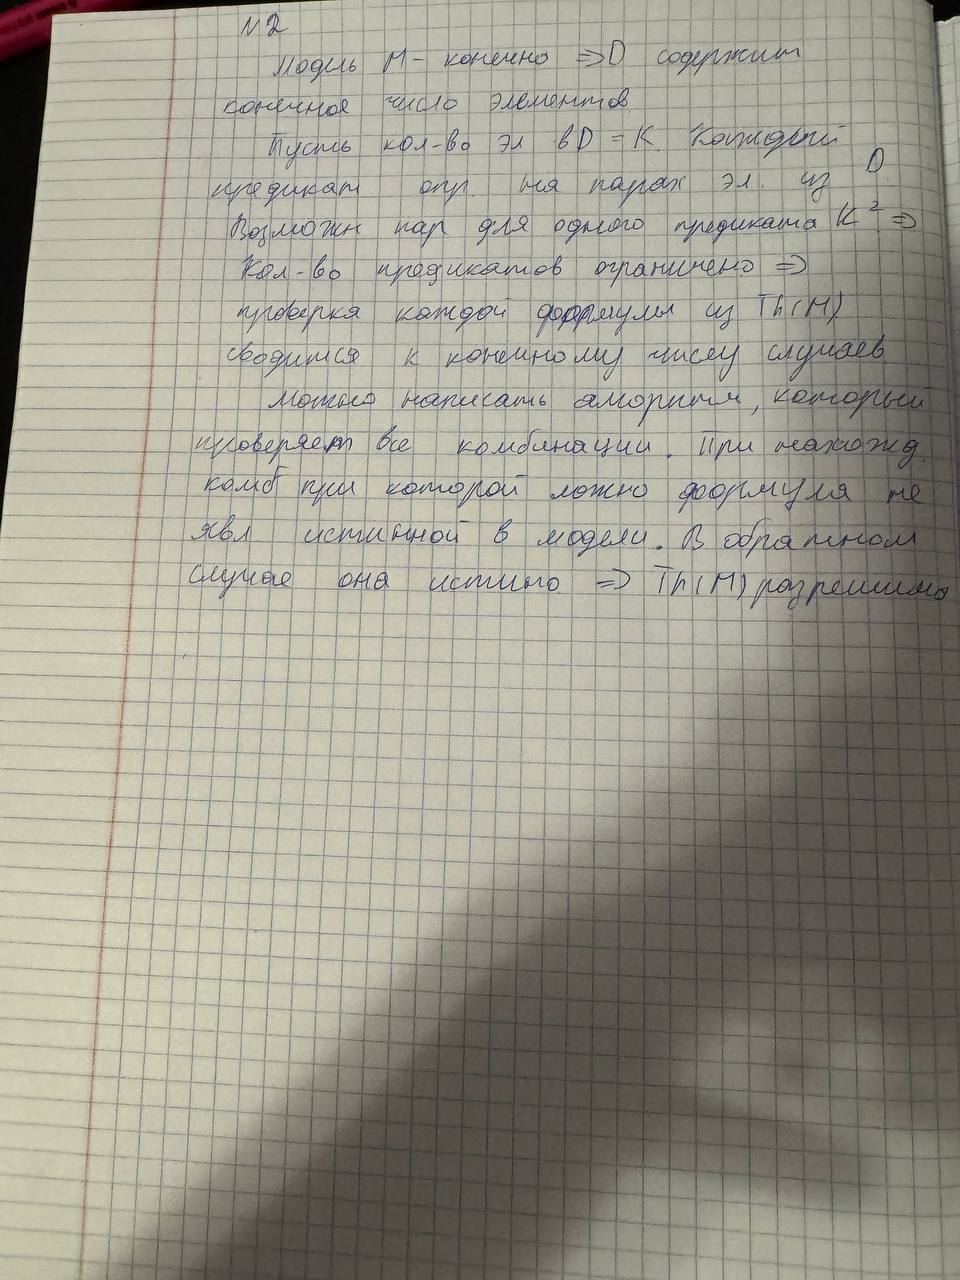 N2
Модель M - конечно => D содержит
конечное число элементов
Пусть кол-во эл в D = K. Каждый
предикат опр. на парах эл. из D.
Возможн пар для одного предиката K² =>
Кол-во предикатов ограничено =>
проверка каждой формулы из Th(M)
сводится к конечному числу случаев
Можно написать алгоритм, который
проверяет все комбинации. При нахожд.
комб при которой ложно формула не
явл истинной в модели. В обратном
случае она истино => Th(M) разрешима